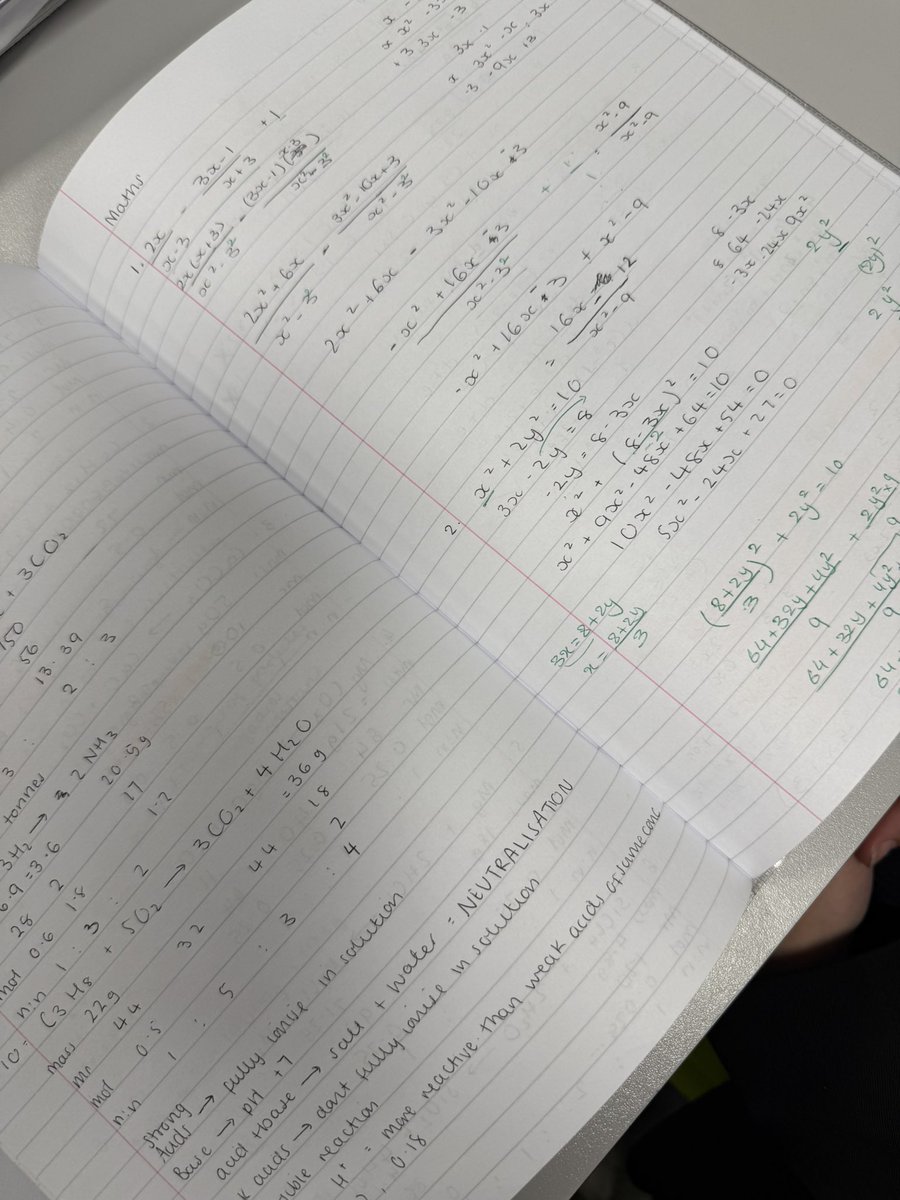 Maths
1. 2x/x-3 - 3x-1/x+3 + 1
2x(x+3)/x²-3² - (3x-1)(x-3)/x²-3²
2x²+6x/x²-3² - 3x²-10x+3/x²-3²
2x²+6x - 3x²-10x+3
-x²+16x-3/x²-3² + 1/1 = x²-9/x²-9
-x²+16x-3 + x²-9
= 16x-12/x²-9
x² -3
+3 3x
3x -1
x 3x² -x
-3 -9x +3
2. x²+2y²=10
3x-2y=8
-2y=8-3x
x²+(8-3x)²=10
x²+9x²-48x+64=10
10x²-48x+54=0
5x²-24x+27=0
8 -3x
8 64 -24x
-3x -24x 9x²
2y²
(2y)²
2y²
3x=8+2y
x=8+2y/3
(8+2y/3)²+2y²=10
64+32y+4y²/9 + 2y²×9
64+32y+4y²
9
64
+ 3CO₂
150
56
13.39
2 : 3
tonnes
3H₂ → 2NH₃
6.9 =3.6
20.59
28 2
17
mol 0.6 1.8
1.2
nin 1 : 3 : 2
10= C₃H₈ + 5O₂ → 3CO₂ + 4H₂O
mass 22g =36g
mr 44 32 44 18
mol 0.5 2
nin 1 : 5 : 3 : 4
Strong
Acids → fully ionise in solution
Base → pH +7
acid + base → salt + water = NEUTRALISATION
k acids → dont fully ionise in solution
ible reaction
H⁺ = more reactive than weak acids of same conc
0.18